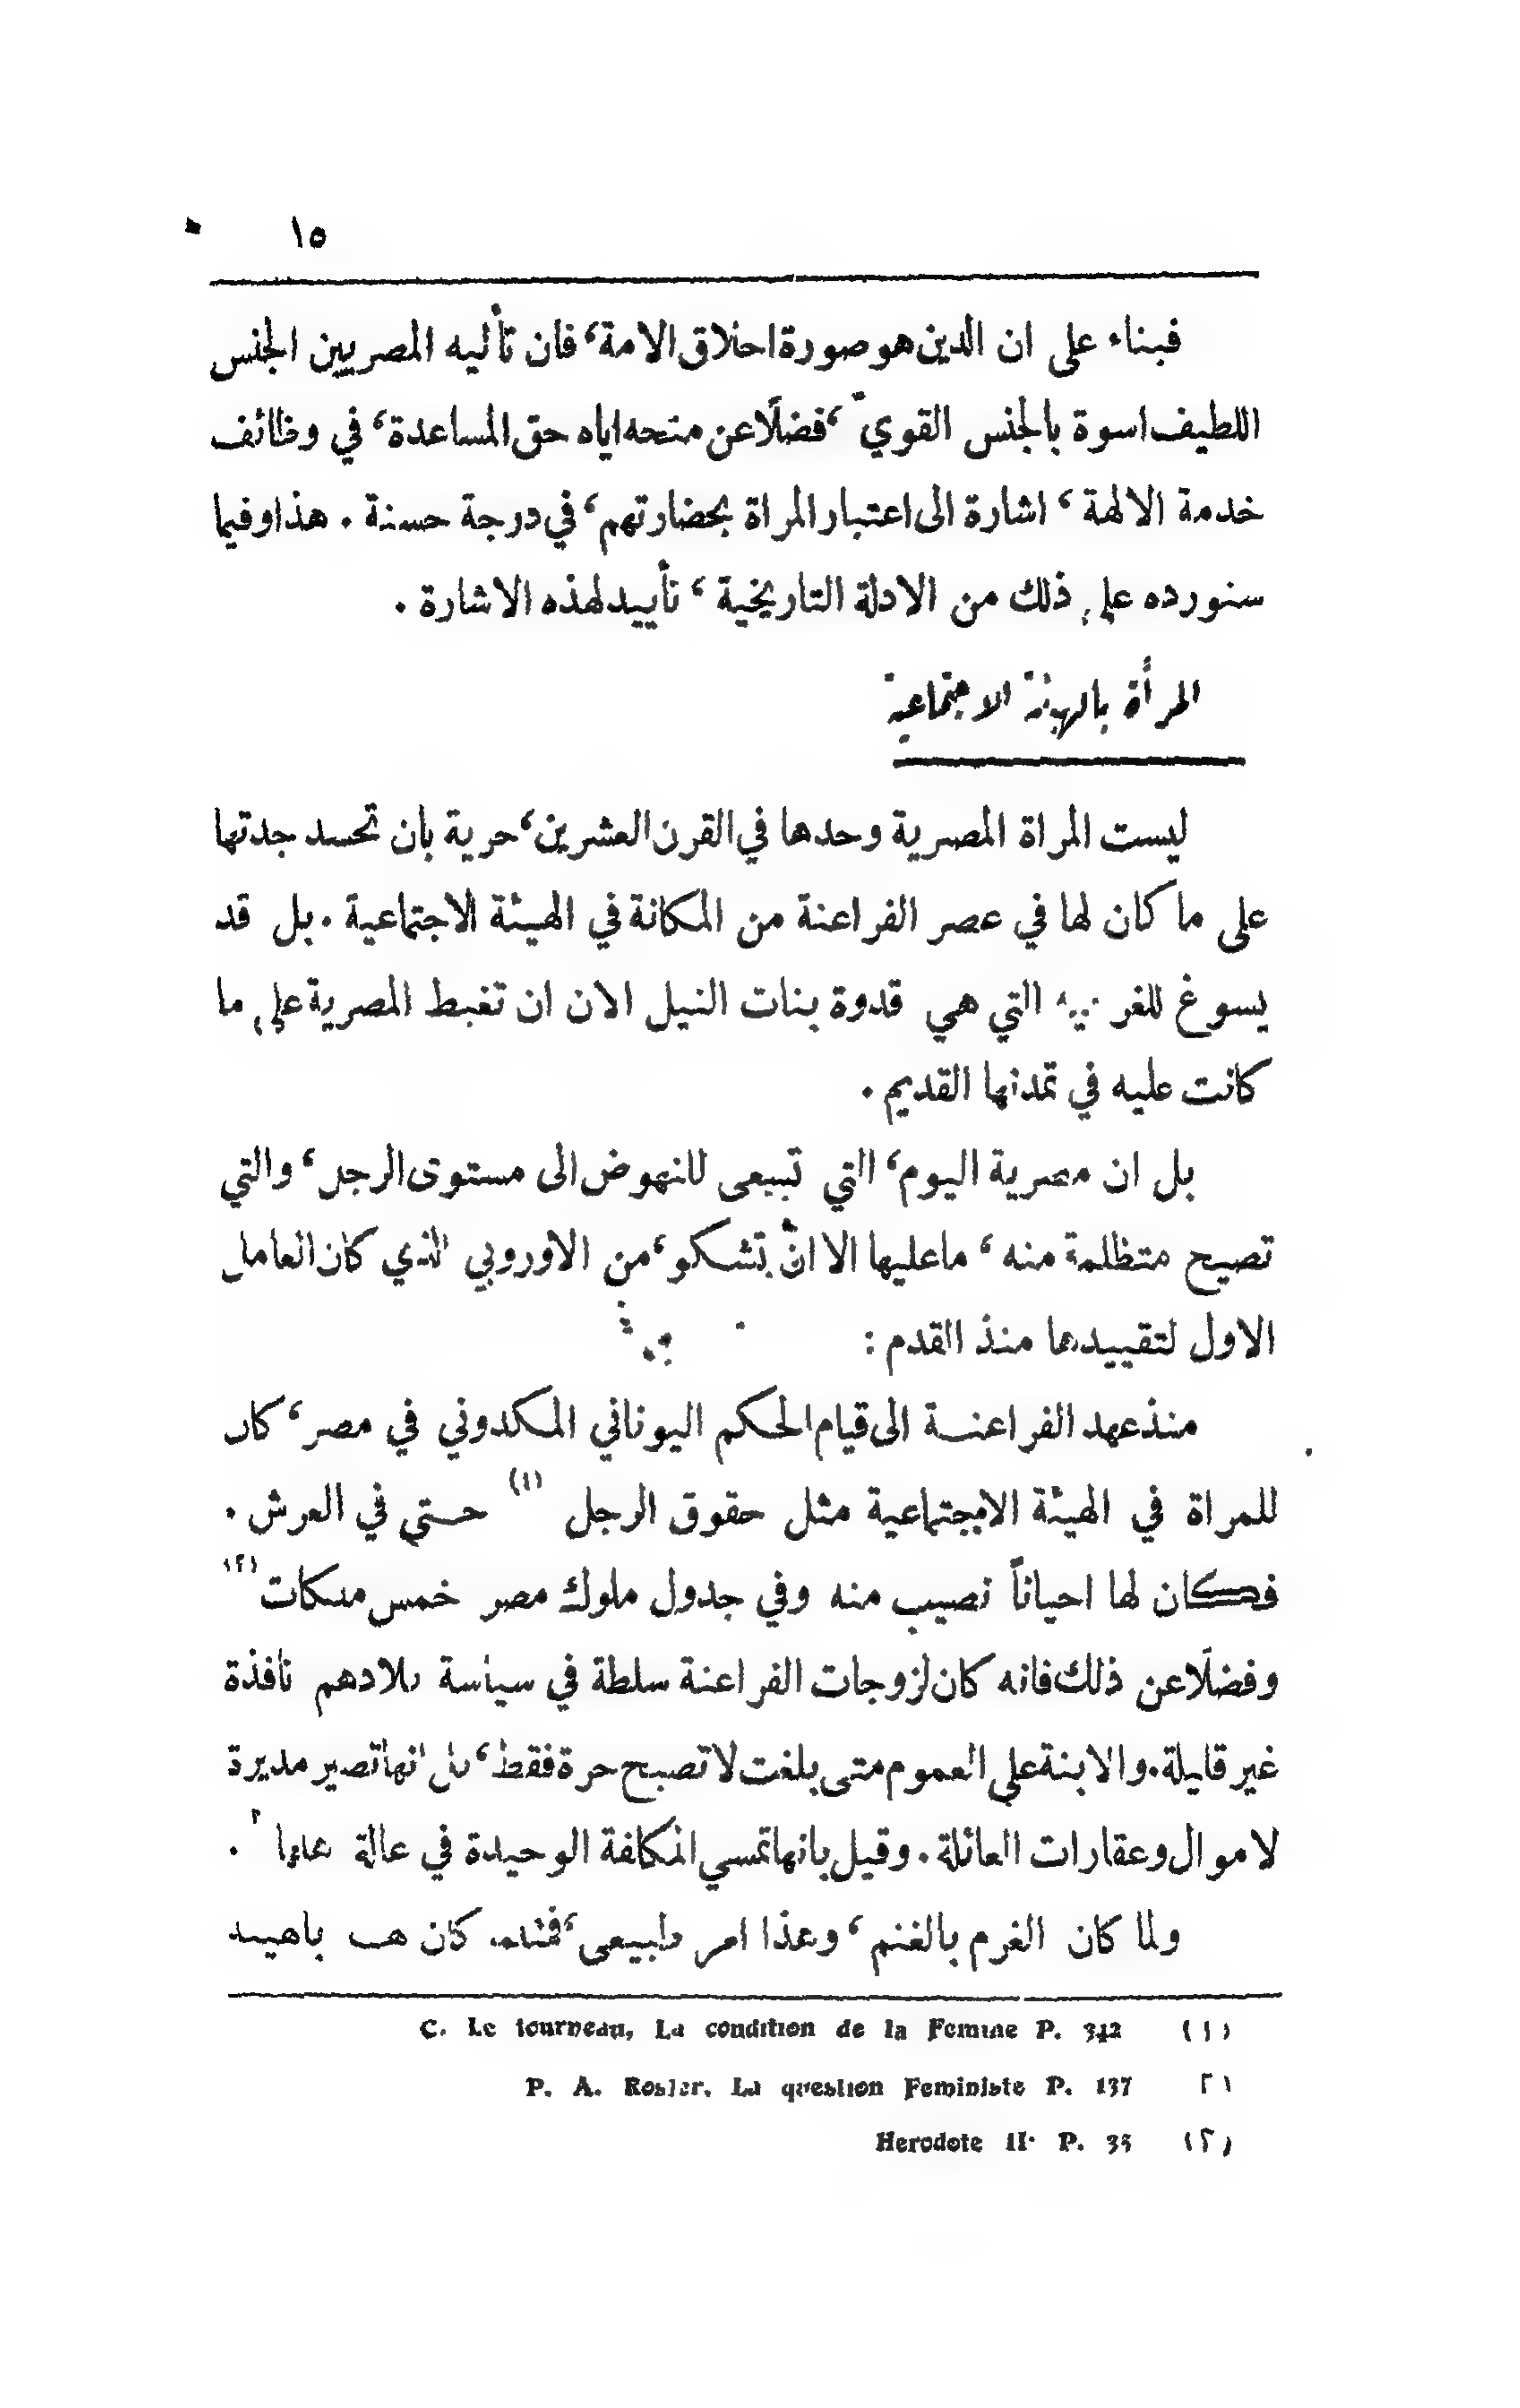 ١٥
فبناء على ان الدين هو صورة اخلاق الامة، فان تأليه المصريين الجنس
اللطيف اسوة بالجنس القويّ، فضلًا عن منحه اياه حق المساعدة، في وظائف
خدمة الالهة، اشارة الى اعتبار المراة بحضارتهم، في درجة حسنة. هذا وفيما
سنورده على ذلك من الادلة التاريخية، تأييد لهذه الاشارة.
المرأة بالهيئة الاجتماعية
ليست المراة المصرية وحدها في القرن العشرين، حرية بان تحسد جدتها
على ما كان لها في عصر الفراعنة من المكانة في الهيئة الاجتماعية. بل قد
يسوغ للغربية التي هي قدوة بنات النيل الان ان تغبط المصرية على ما
كانت عليه في تمدنها القديم.
بل ان مصرية اليوم، التي تسعى للنهوض الى مستوى الرجل، والتي
تصيح متظلمة منه، ما عليها الا انّ تشكو، من الاوروبي الذي كان العامل
الاول لتقييدها منذ القدم:
منذ عهد الفراعنة الى قيام الحكم اليوناني المكدوني في مصر، كان
للمراة في الهيئة الاجتماعية مثل حقوق الرجل (١) حتى في العرش.
فكان لها احياناً نصيب منه وفي جدول ملوك مصر خمس ملكات (٢)
وفضلًا عن ذلك فانه كان لزوجات الفراعنة سلطة في سياسة بلادهم نافذة
غير قليلة. والابنة على العموم متى بلغت لا تصبح حرة فقط، بل انها تصير مديرة
لاموال وعقارات العائلة. وقيل بانها تمسي المكلفة الوحيدة في عالة
ولما كان الغرم بالغنم، وهذا امر طبيعي، كان
C. Le tourneau, La condition de la Femme P. 342 (١)
P. A. Rosler, La question Feministe P. 137 ٢)
Herodote II. P. 35 (٢)